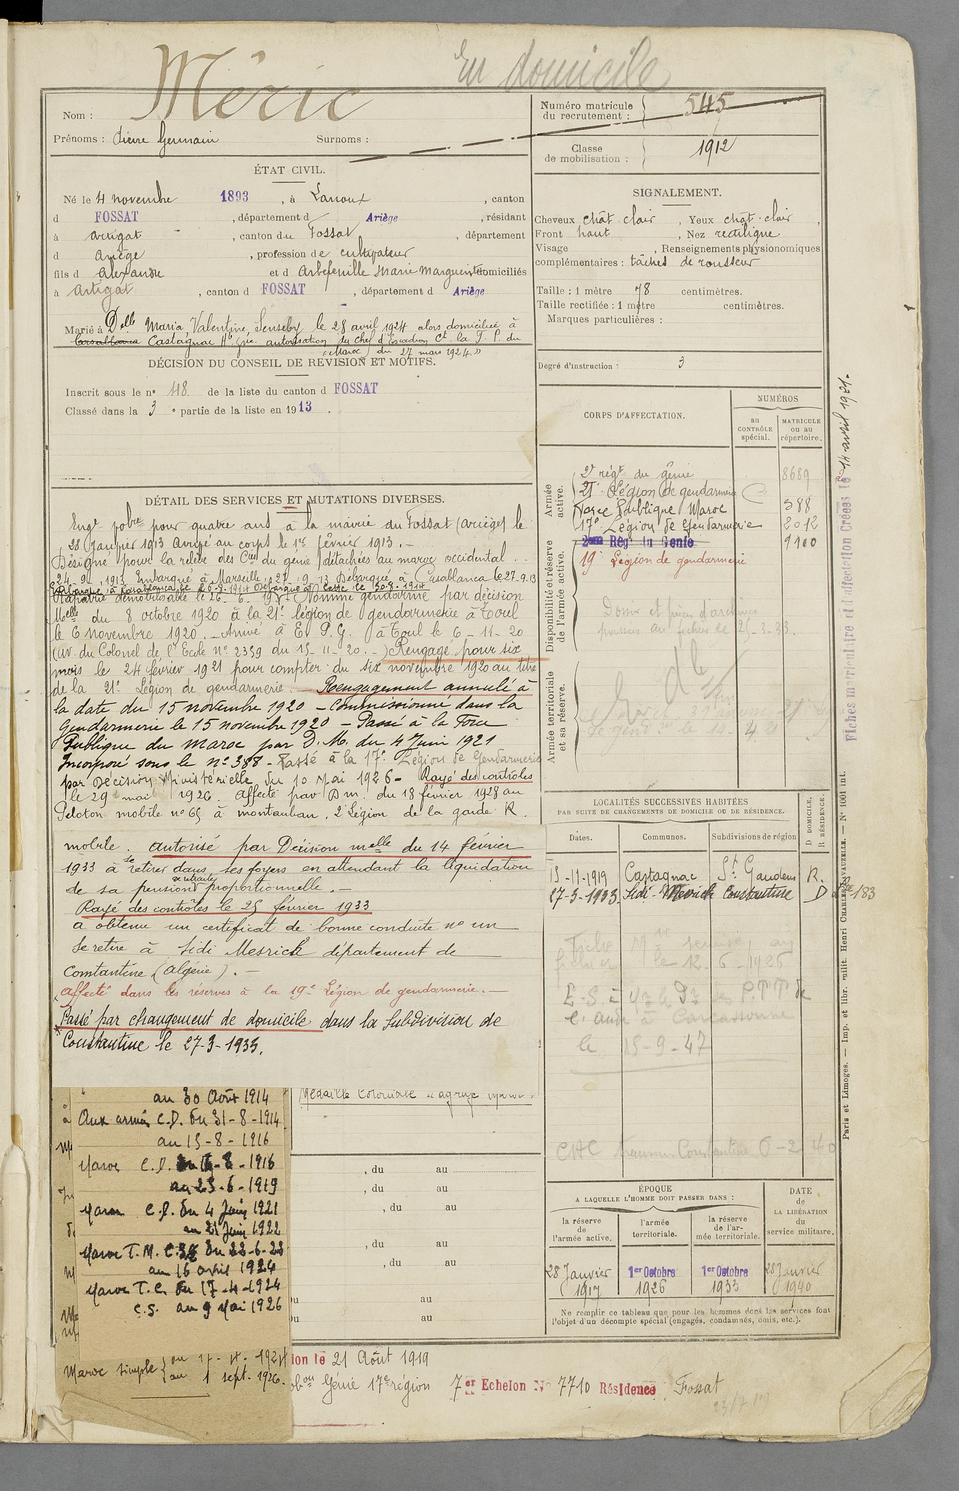 En domicile
Nom : Méric
Prénoms : Pierre Germain Surnoms :
Numéro matricule du recrutement : 545
Classe de mobilisation : 1912
ÉTAT CIVIL.
Né le 4 novembre 1893, à Lanoux, canton
d FOSSAT, département d Ariège, résidant
à Artigat, canton du Fossat, département
d Ariège, profession de cultivateur
fils d Alexandre et d Arbefeuille Marie Marguerite domiciliés
à Artigat, canton d FOSSAT, département d Ariège
Marié à Delle Maria, Valentine, Senseby, le 28 avril 1924 alors domiciliée à
Casablanca Castagnac Hte Gne autorisation du Chef d'Escadron Ct la F. P. du
Maroc du 27 mars 1924
SIGNALEMENT.
Cheveux chât. clair, Yeux chat. clair,
Front haut, Nez rectiligne
Visage , Renseignements physionomiques
complémentaires : tâches de rousseur
Taille : 1 mètre 78 centimètres.
Taille rectifiée : 1 mètre centimètres.
Marques particulières :
Degré d'instruction : 3
DÉCISION DU CONSEIL DE REVISION ET MOTIFS.
Inscrit sous le n° 48 de la liste du canton d FOSSAT
Classé dans la 3e partie de la liste en 1913.
DÉTAIL DES SERVICES ET MUTATIONS DIVERSES.
Engé volre pour quatre ans à la mairie du Fossat (Ariège) le
28 Janvier 1913 Arrivé au corps le 1er février 1913. -
Désigné pour la relève des Cies du génie détachés au maroc occidental
24-9-1913 Embarqué à Marseille 24-9-13 Débarqué à Casablanca le 27.9.13
démobilisable le 26-6-1919 Nommé gendarme par décision
Melle du 8 octobre 1920 à la 21e légion de gendarmerie à Toul
le 6 novembre 1920. Arrivé à E. P. G. à Toul le 6-11-20
(av. du Colonel de l'Ecole n° 2359 du 15-11-20.-) Rengagé pour six
mois le 24 février 1921 pour compter du six novembre 1920 au titre
de la 21e Légion de gendarmerie. Rengagement annulé à
la date du 15 novembre 1920 - Commissionné dans la
Gendarmerie le 15 novembre 1920 - Passé à la Force
Publique du Maroc par D. M. du 4 Juin 1921
Incorporé sous le n° 388 - Passé à la 17e Légion de Gendarmerie
par Décision Ministérielle du 10 Mai 1926 - Rayé des contrôles
le 29 mai 1926. Affecté par D m. du 18 février 1928 au
Peloton mobile n° 65 à Montauban, 2 Légion de la garde R.
mobile. Autorisé par Décision melle du 14 février
1933 à se retirer dans ses foyers en attendant la liquidation
de sa pension de retraite proportionnelle. -
Rayé des contrôles le 25 février 1933
a obtenu un certificat de bonne conduite n° un
Se retire à Sidi Mesrich département de
Constantine (Algérie). -
Affecté dans les réserves à la 19e Légion de gendarmerie. -
Passé par changement de domicile dans la Subdivision de
Constantine le 27-3-1935.
CORPS D'AFFECTATION.
NUMÉROS
au CONTRÔLE spécial.
MATRICULE ou au répertoire.
Armée active.
2e régt du génie 8689
21e Légion de gendarmerie
Force Publique Maroc 388
17e Légion de Gendarmerie 2012
Disponibilité et réserve de l'armée active.
2ème Régt du Génie 9100
19e Légion de gendarmerie
Armée territoriale et sa réserve.
LOCALITÉS SUCCESSIVES HABITÉES
PAR SUITE DE CHANGEMENTS DE DOMICILE OU DE RÉSIDENCE.
Dates. Communes. Subdivisions de région D DOMICILE, R RÉSIDENCE.
13-11-1919 Castagnac St Gaudens R.
27-3-1935 Sidi-Mesrich Constantine D
E. S. à
à Carcassonne
le 15-9-47
Constantine 6-2-40
au 30 Août 1914
Aux armées C.D. du 31-8-1914
au 15-8-1916
Maroc C.D. 16-8-1916
au 23-6-1919
Maroc C.D. du 4 Juin 1921
au 21 Juin 1922
Maroc T. M. du 22-6-22
au 16 avril 1924
Maroc T. C. du 17-4-1924
C.S. au 9 Mai 1926
Médaille Coloniale agrafe Maroc
, du au
, du au
, du au
, du au
, du au
du au
du au
ÉPOQUE
A LAQUELLE L'HOMME DOIT PASSER DANS :
la réserve de l'armée active. l'armée territoriale. la réserve de l'armée territoriale.
DATE de LA LIBÉRATION du service militaire.
28 Janvier 1917 1er Octobre 1926 1er Octobre 1933 28 Janvier 1940
Ne remplir ce tableau que pour les hommes dont les services font
l'objet d'un décompte spécial (engagés, condamnés, omis, etc.).
Maroc simple
au 1 sept. 1926.
le 21 Août 1919
Génie 17e région 7er Echelon No 7710 Résidence Fossat
Fiches matriculaire et d'affectation Créées le 14 avril 1921.
Paris et Limoges. — Imp. et libr. milit. Henri CHARLES-LAVAUZELLE. — N° 1001 int.